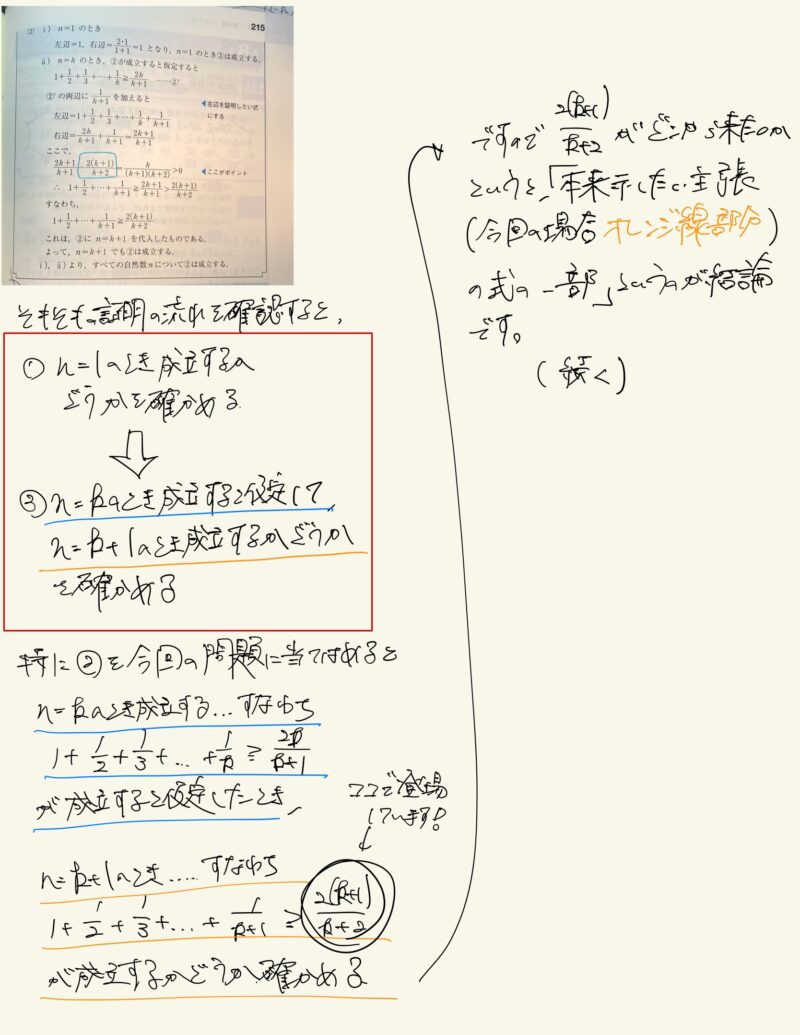 215
(2) i) n=1 のとき
左辺=1, 右辺=2·1/(1+1)=1 となり, n=1 のとき②は成立する.
ii) n=k のとき, ②が成立すると仮定すると
1+1/2+1/3+…+1/k≧2k/(k+1) ……②′
②′の両辺に 1/(k+1) を加えると
左辺=1+1/2+1/3+…+1/k+1/(k+1)
◀左辺を証明したい式にする
右辺=2k/(k+1)+1/(k+1)=(2k+1)/(k+1)
ここで,
(2k+1)/(k+1)-2(k+1)/(k+2)=k/((k+1)(k+2))>0
◀ここがポイント
∴ 1+1/2+…+1/(k+1)≧(2k+1)/(k+1)>2(k+1)/(k+2)
すなわち,
1+1/2+…+1/(k+1)≧2(k+1)/(k+2)
これは, ②に n=k+1 を代入したものである.
よって, n=k+1 でも②は成立する.
i), ii)より, すべての自然数 n について②は成立する.
そもそも証明の流れを確認すると,
① n=1のとき成立するの
どうかを確かめる
⇩
② n=kのとき成立すると仮定して,
n=k+1のとき成立するかどうか
を確かめる
特に②を今回の問題に当てはめると
n=kのとき成立する…すなわち
1+1/2+1/3+…+1/k≧2k/(k+1)
が成立すると仮定したとき,
ココで登場
しています!
n=k+1のとき…..すなわち
1+1/2+1/3+…+1/(k+1)≧2(k+1)/(k+2)
が成立するかどうか確かめる
ですので 2(k+1)/(k+2) がどこから来たのか
というと、「本来示したい主張
(今回の場合オレンジ線部分)
の式の一部」というのが結論
です。
(続く)